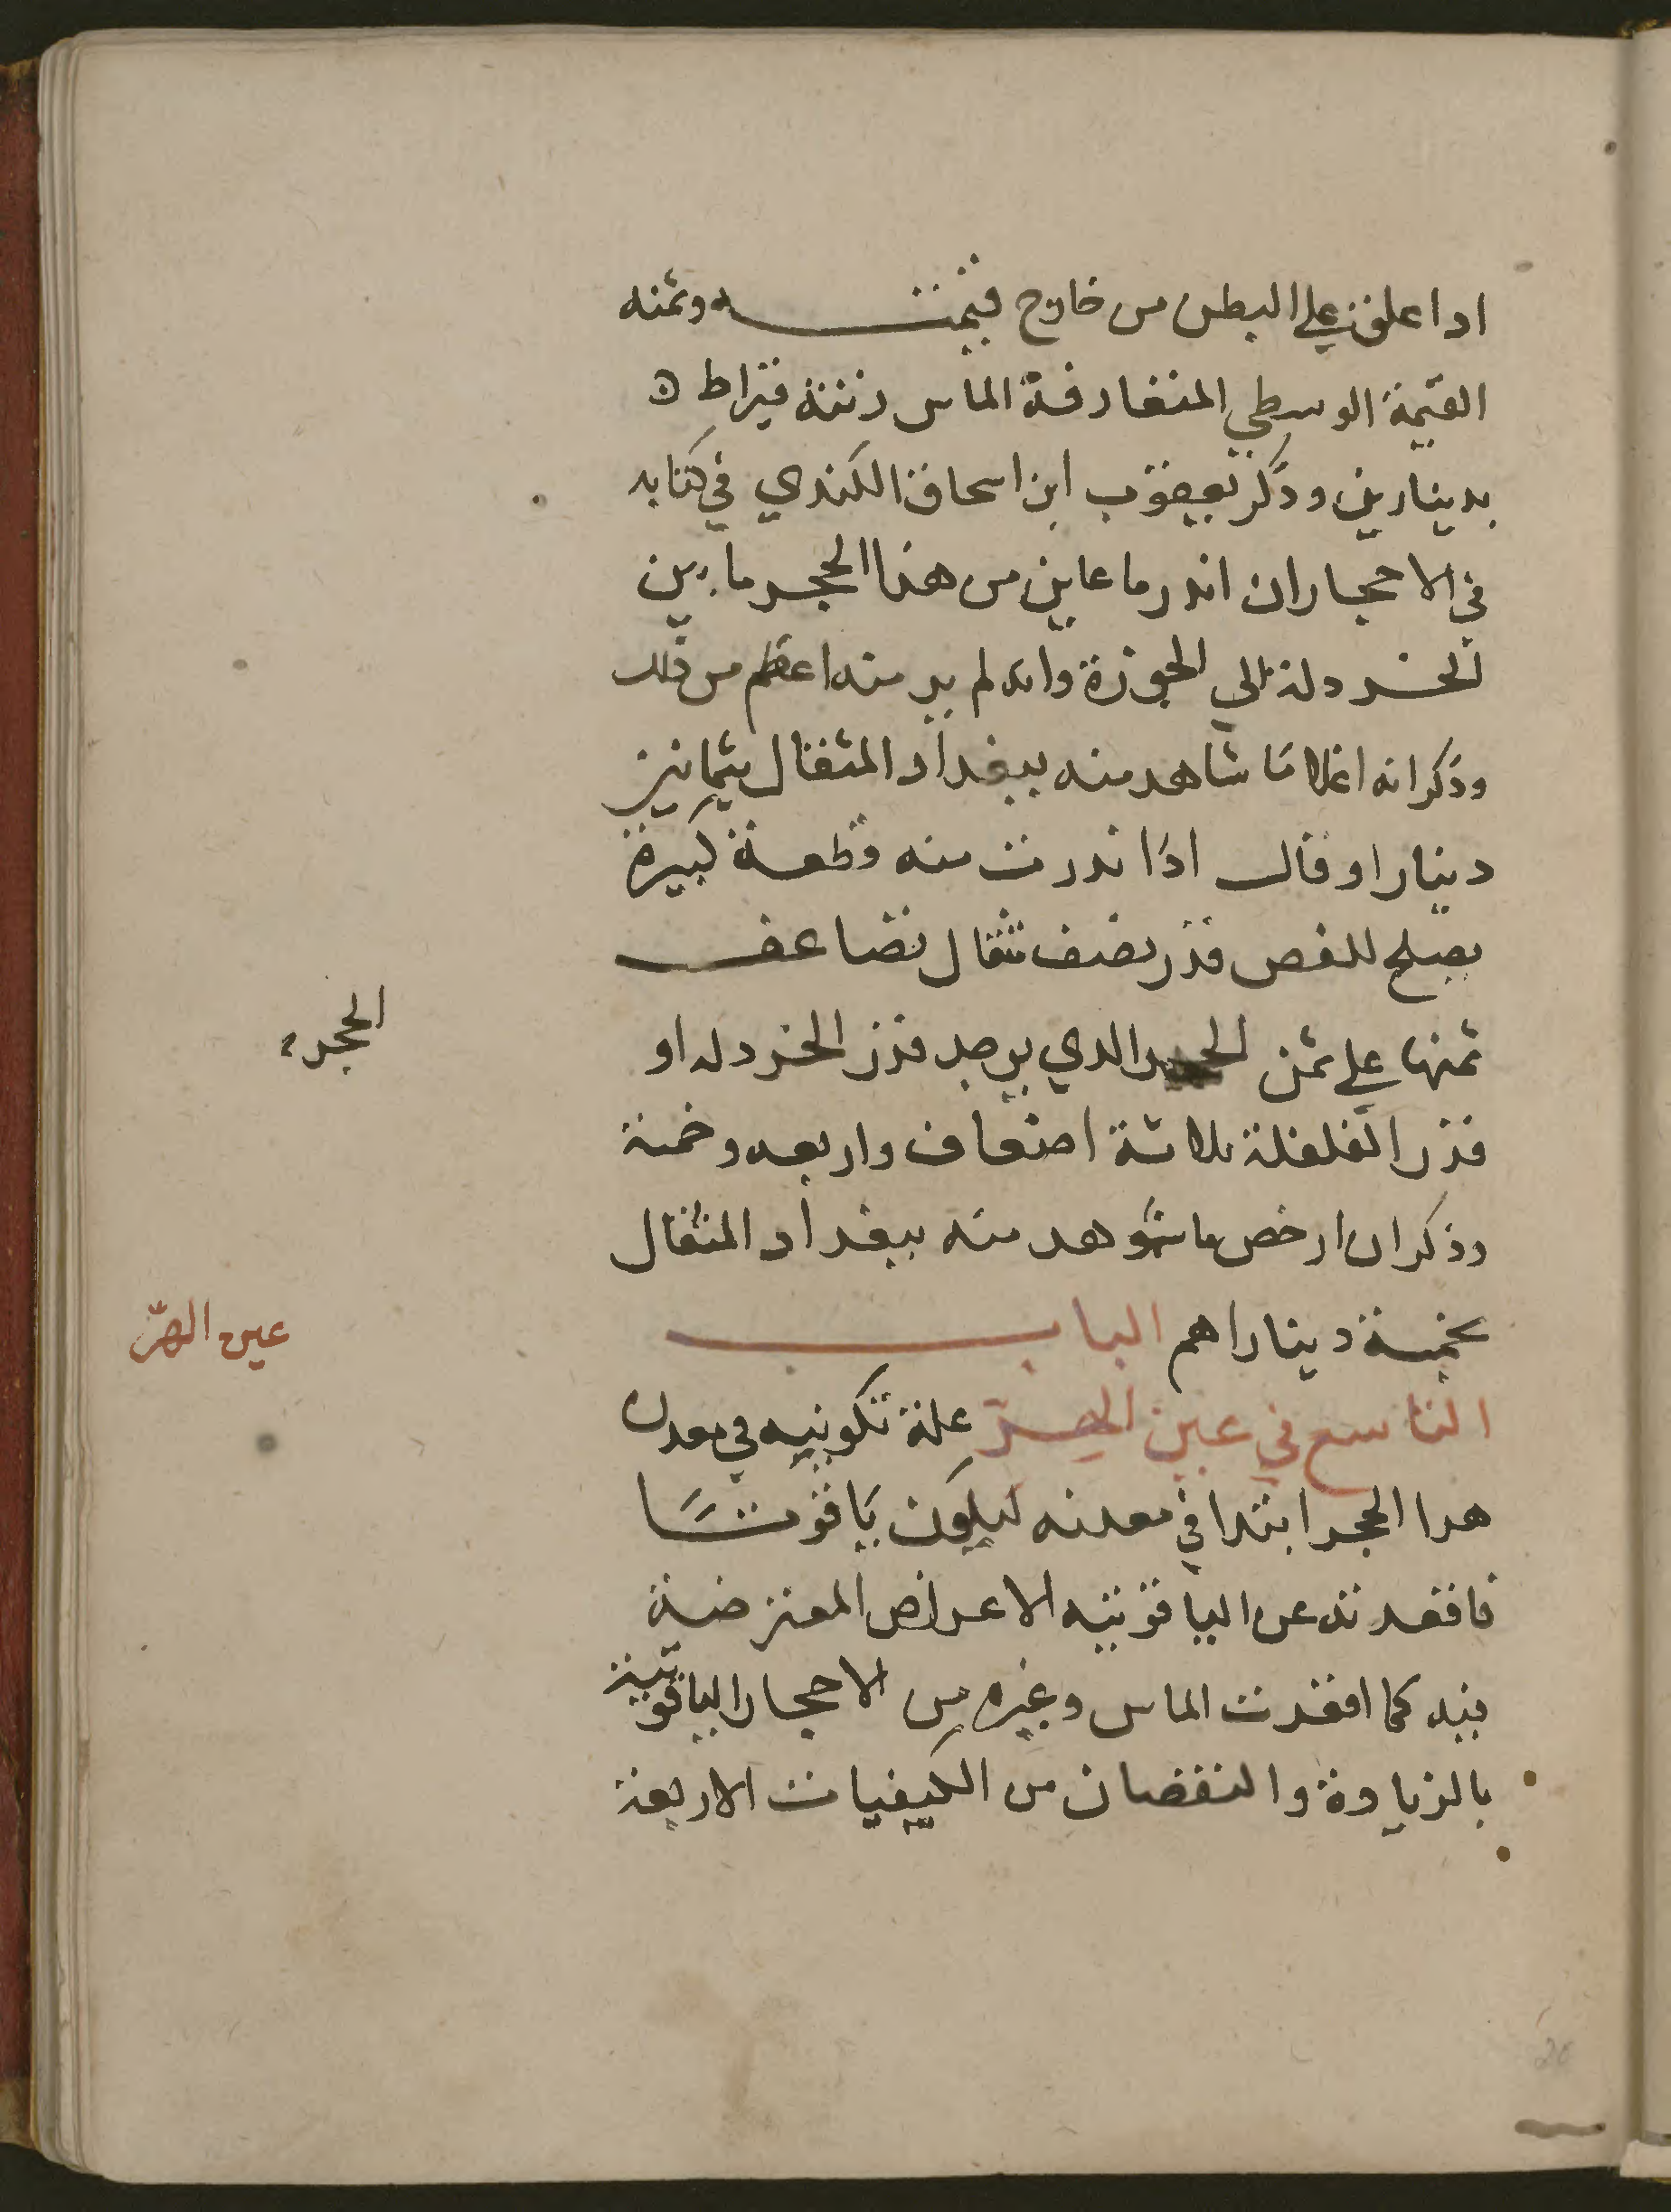 ادا علق علي البطن من خارج قيمتـــه وثمنه
القيمة الوسطي المتعارفة الماس زنته قيراط ه
بدينارين وذكر يعقوب ابن اسحاق الكندي في كتابه
في الاحجار ان اندر ما عاين من هذا الحجر ما بين
الخردلة الي الجوزة وانه لم ير منه اعظم من ذلك
وذكر انه اغلا ما شاهد منه ببغداد المثقال بثمانين
دينارا وقال اذا ندرت منه قطعة كبيرة
يصلح للفص قدر نصف مثقال تضاعف
ثمنها علي ثمن الحجر الدي يوجد قدر الخردله او
الحجر
قدر الفلفلة ثلاثة اضعاف واربعه وخمسة
وذكر ان ارخص ما شوهد منه ببغداد المثقال
بخمسة دينارا هم البـــاب
عين الهرّ
التاسع في عين الهرّ علة تكونيه في معدن
هدا الحجر ابتدا في معدنه ليكون ياقوتًـا
فاقعدته عن الياقوتيه الاعراض المعترضة
فيه كما اقعدت الماس وغيره من الاحجار الياقوتيية
بالزيادة والنقصان من الكيفيات الاربعة
20